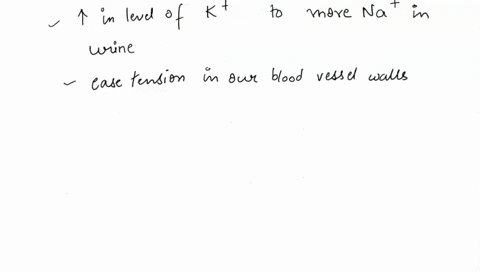 ✓ ↑ in level of K⁺ to more Na⁺ in
urine
✓ ease tension in our blood vessel walls